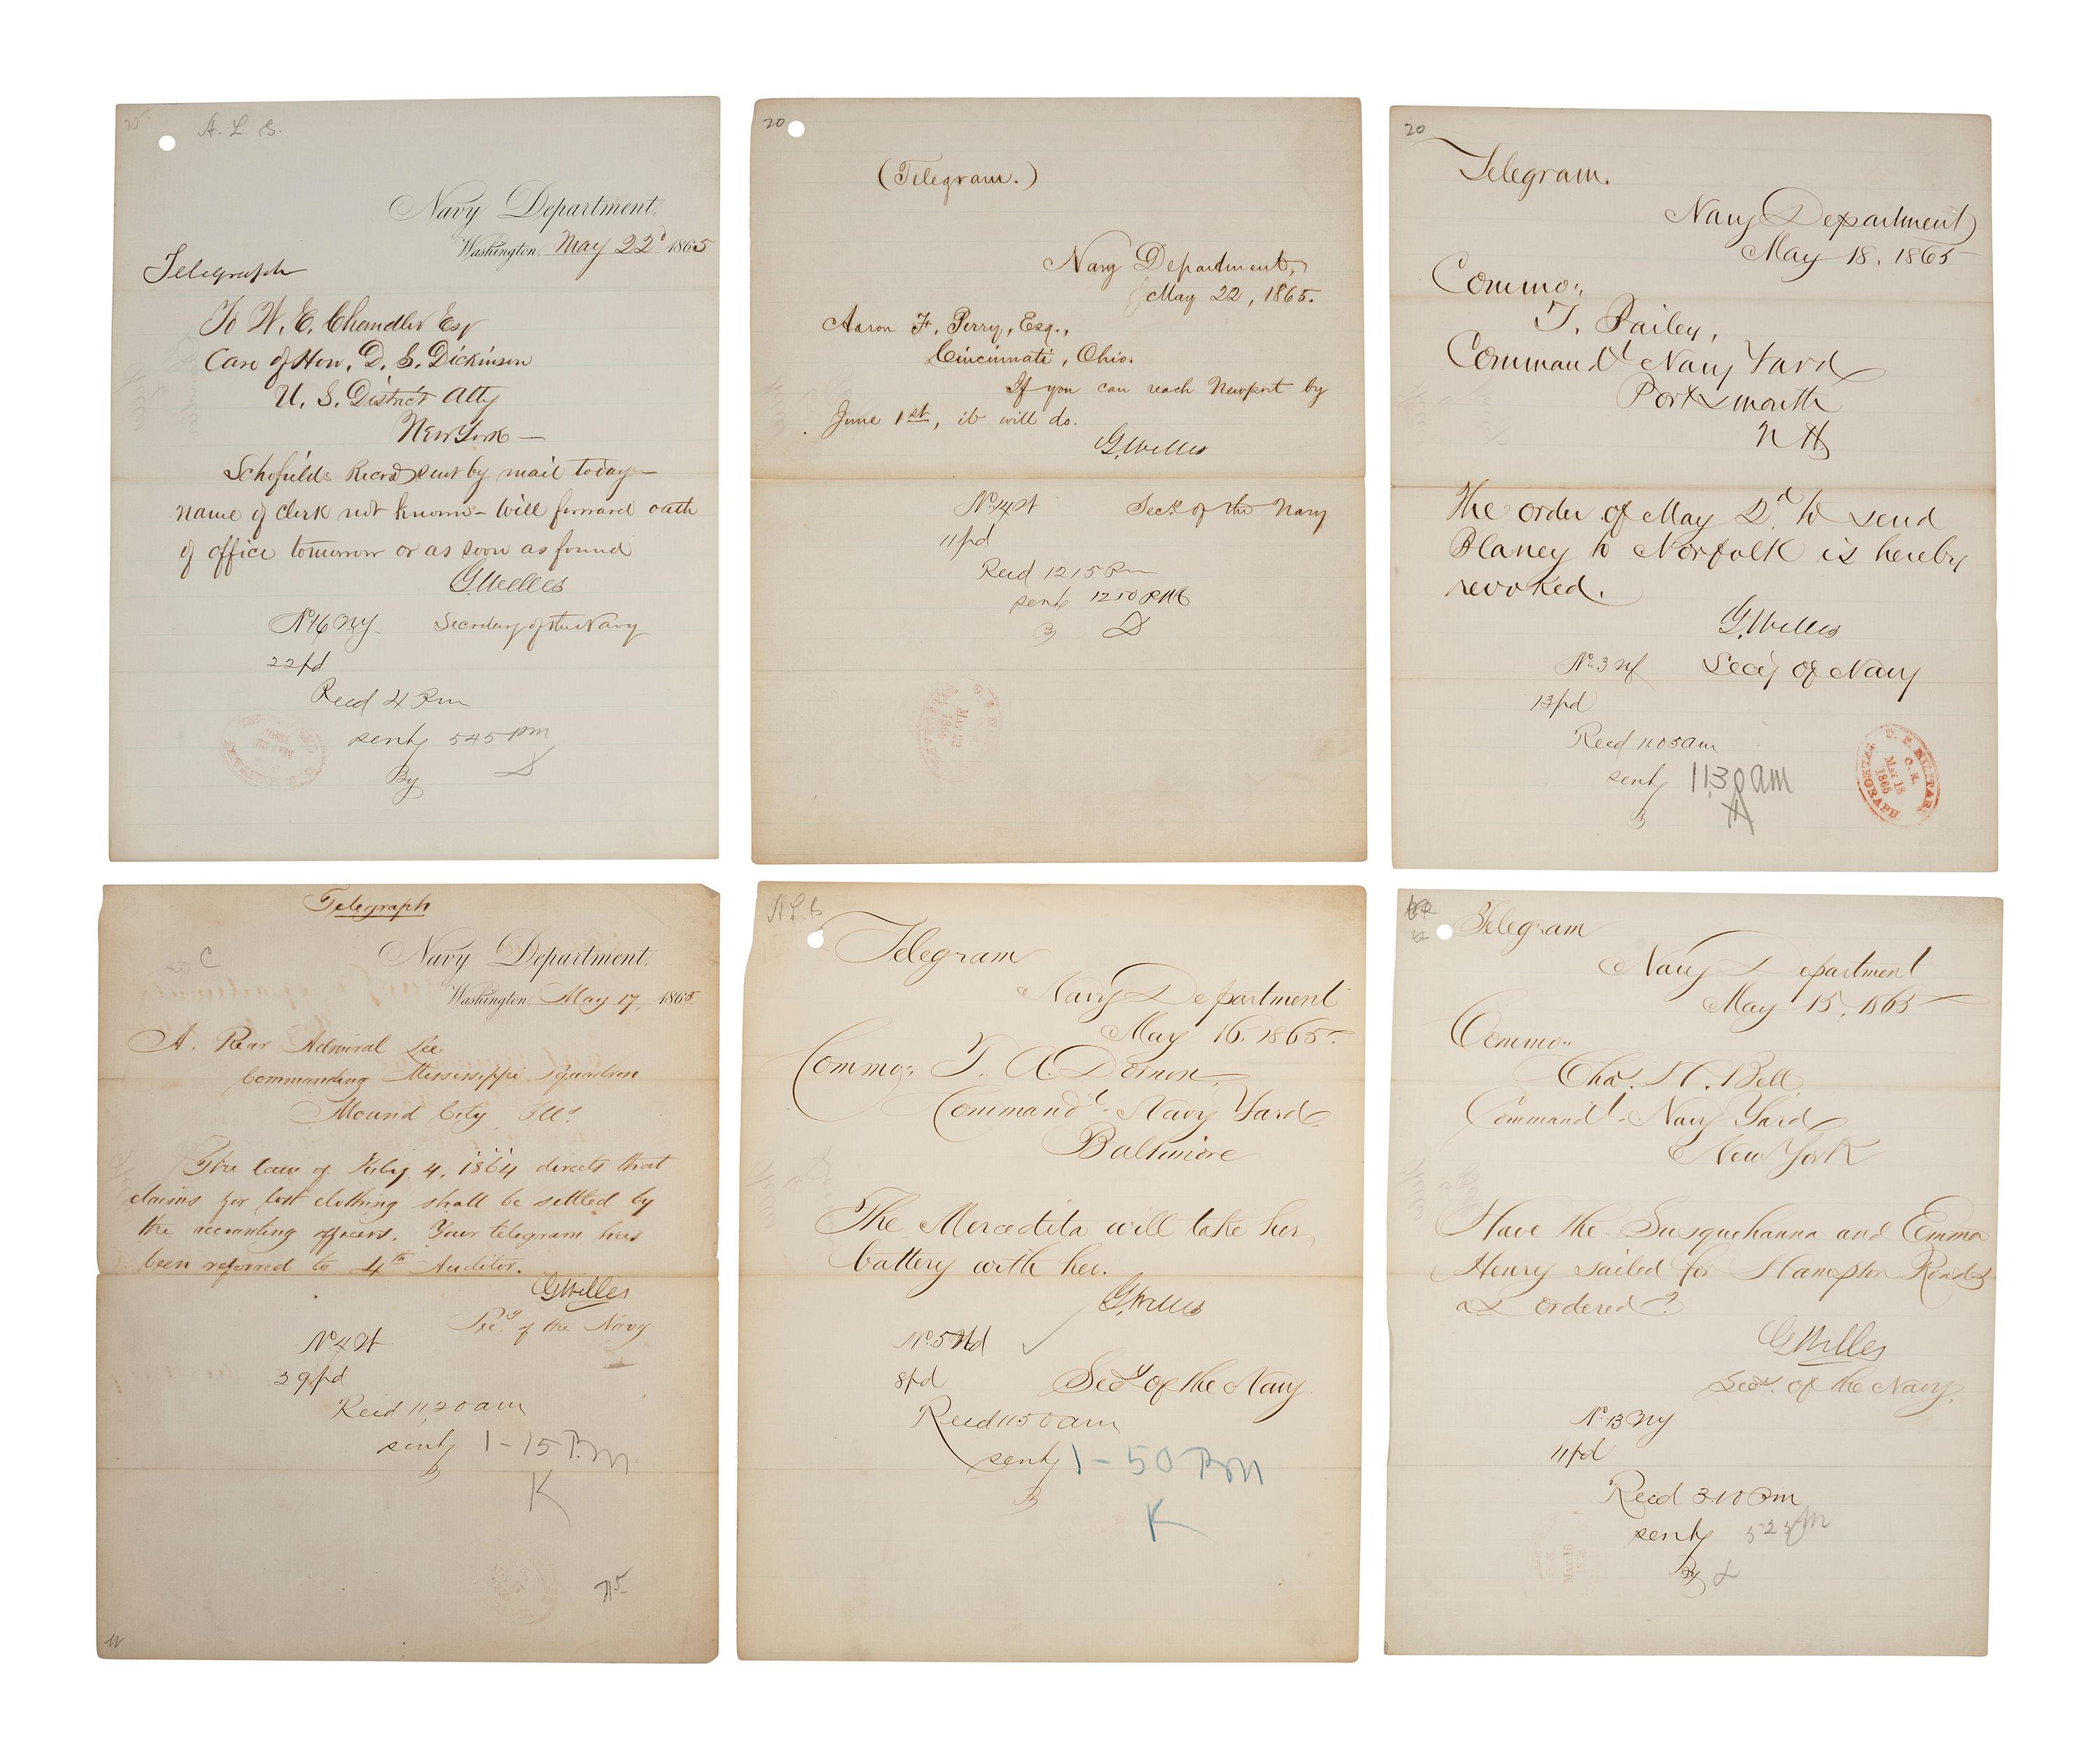 25 A. L. S.
Navy Department.
Washington, May 22d 1865
Telegraph
To W. E. Chandler Esq
Care of Hon. D. S. Dickinson
U. S. District Atty
New York —
Schofields Record sent by mail today —
name of clerk not known - Will forward oath
of office tomorrow or as soon as found
G Welles
No 16 NY. Secretary of the Navy
22 pd
Recd 4 Pm
sent 545 pm
By
20
(Telegram.)
Navy Department,
May 22, 1865.
Aaron F. Perry, Esq.,
Cincinnati, Ohio.
If you can reach Newport by
June 1st, it will do.
G. Welles
Secy of the Navy
11 pd
Recd 1215 Pm
sent 1250 PM
B D
20
Telegram.
Navy Department
May 18, 1865
Commo:
T. Bailey,
Commandt Navy Yard
Portsmouth
N H
The order of May 2d to send
Blaney to Norfolk is hereby
revoked.
G. Welles
No. 3 Secy of Navy
13 pd
Recd 1105 am
sent 1130 am
B
U. S. MILITARY
TELEGRAPH
MAY 18
1865
Telegraph
C
Navy Department.
Washington, May 17, 1865
A. Rear Admiral Lee
Commanding Mississippi Squadron
Mound City Ills
The law of July 4, 1864 directs that
claims for lost clothing shall be settled by
the accounting officers. Your telegram has
been referred to 4th Auditor.
G Welles
Secy of the Navy
39 pd
Recd 11,20 am
sent 1-15 P.m
B K
A L S
Telegram
Navy Department
May 16, 1865
Commo: T. A. Dornin
Commandt Navy Yard
Baltimore
The Mercedita will take her
battery with her.
G. Welles
No. 5 Md
8 pd Secy of the Navy
Recd 1150 am
sent 1-50 Pm
B
K
Telegram
Navy Department
May 15, 1865
Commo:
Chas. H. Bell
Commandt Navy Yard
New York
Have the Susquehanna and Emma
Henry sailed for Hampton Roads
as ordered?
G Welles
Secy. of the Navy.
No 13 NY
11 pd
Recd 310 Pm
sent 525 Pm
By